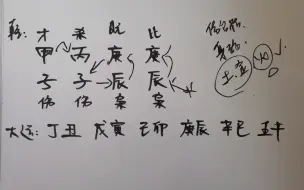 才 杀 比
甲 丙 庚 庚
子 子 辰 辰
伤 伤 枭 枭
大运: 丁丑 戊寅 己卯 庚辰 辛巳 壬午
土 金 火